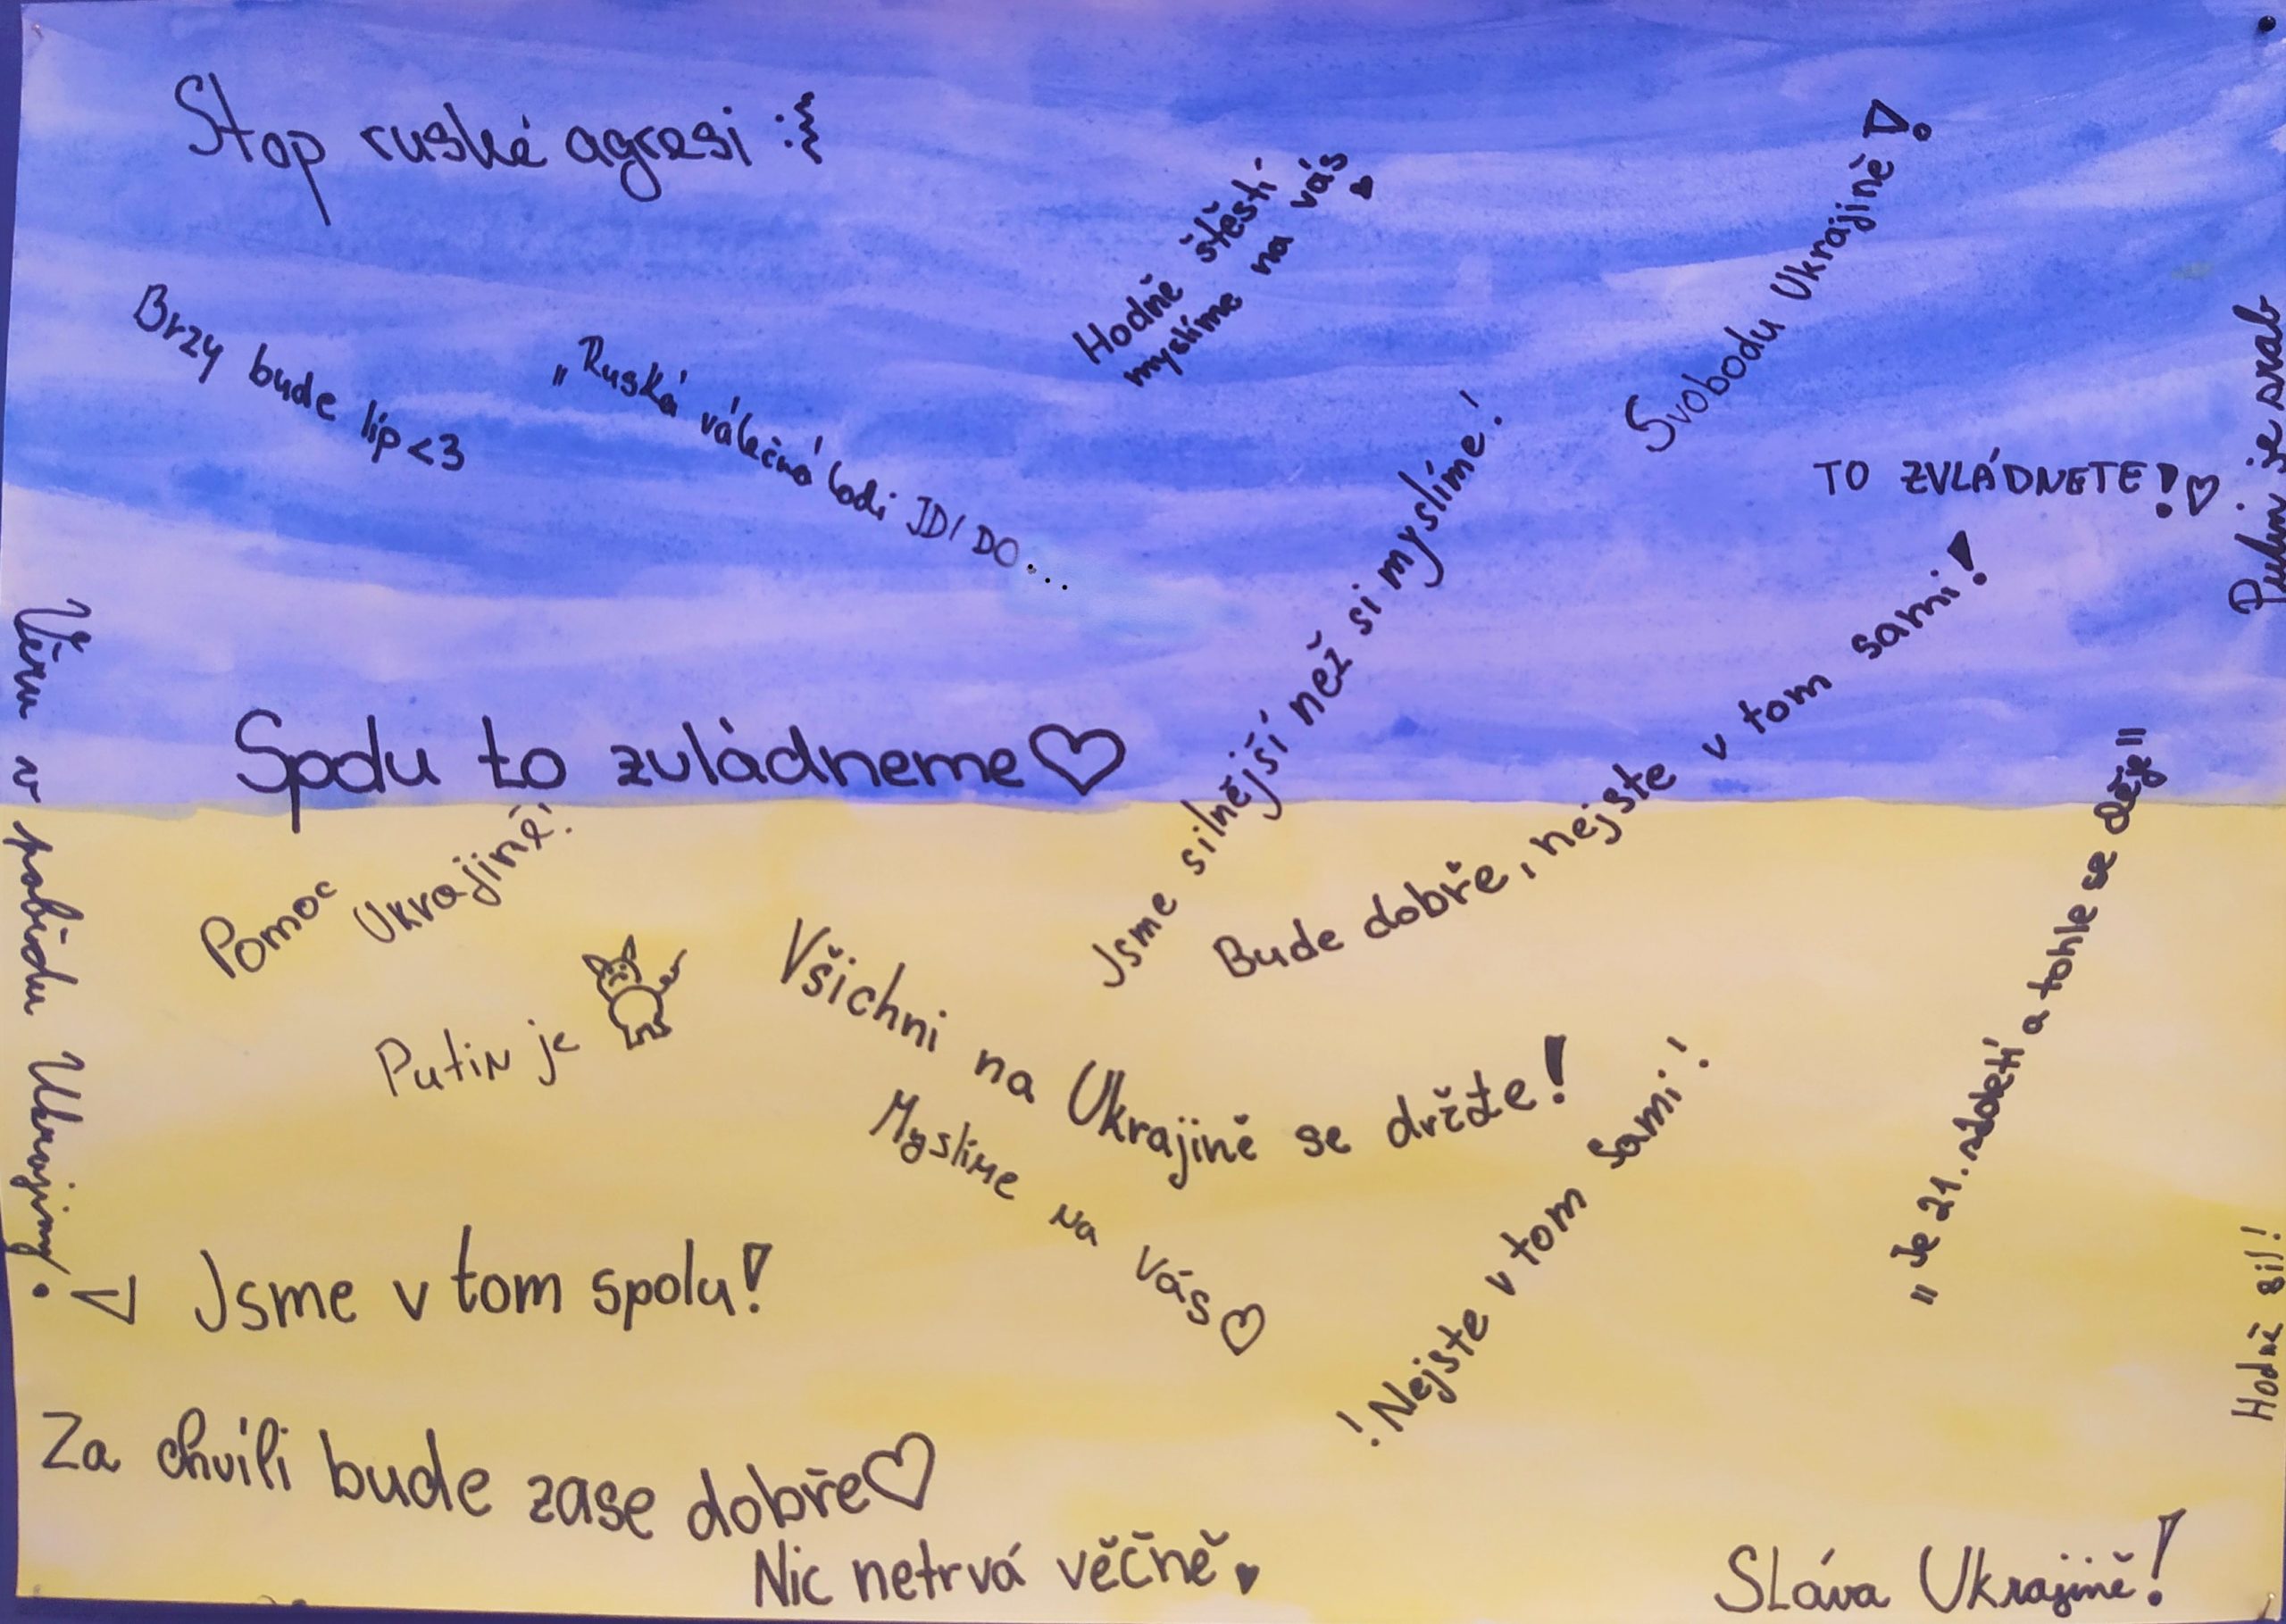 Stop ruské agresi :{
Hodně štěstí
myslíme na vás
Svobodu Ukrajině!
Brzy bude líp <3
„Ruská válečná lodi JDI DO...
TO ZVLÁDNETE!
Putin je srab
Jsme silnější než si myslíme!
Bude dobře, nejste v tom sami!
Věřím v pobědu Ukrajiny!
Spolu to zvládneme
Pomoc Ukrajině!
Putin je
Všichni na Ukrajině se držte!
Myslíme na Vás
„Je 21. století a tohle se děje"
!Nejste v tom sami!
Jsme v tom spolu!
Hodně sil!
Za chvíli bude zase dobře
Nic netrvá věčně
Sláva Ukrajině!